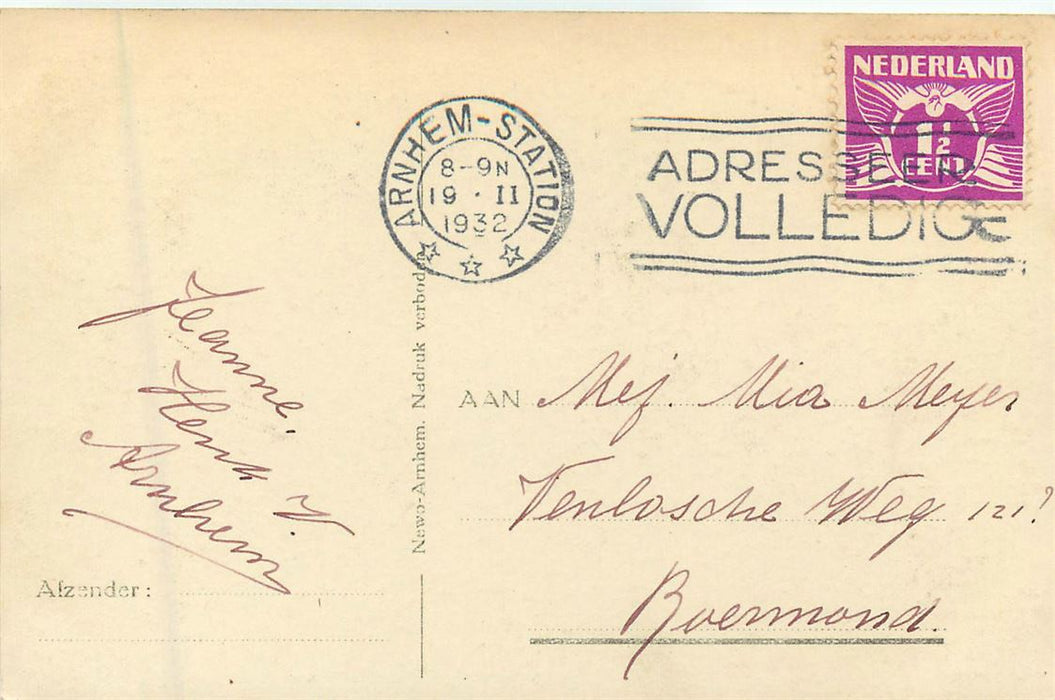 NEDERLAND
1½
CENT
ARNHEM-STATION
8-9N
19 · II
1932
ADRESSEER
VOLLEDIG
Jeanne.
Henk V.
Arnhem
Afzender:
Newo-Arnhem. Nadruk verboden
AAN Mej. Mia Meyer
Venlosche Weg 121?
Roermond.